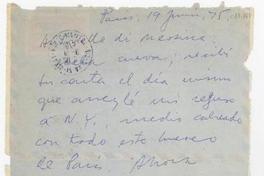 Paris, 19 Junio, 75
di Messina:
cueva; recibí
tu carta el día mismo
que arreglé mi regreso
a N.Y., medio cabreado
con todo este
de París. Ahora